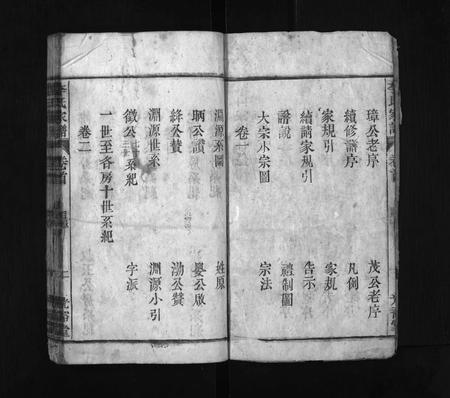 璋公老序 茂公老序
續修譜序 凡例
家規引 家規
續請家規引 告示
譜說 禮制圖
大宗小宗圖 宗法
卷一
淵源系圖 姓原
昞公讚 晏公啟
絳公贊 渤公贊
淵源世系 淵源小引
徵公三系紀 字派
一世至各房十世系紀
卷二
李氏家譜 卷首